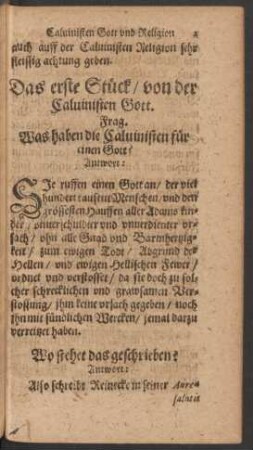 Caluinisten Gott vnd Religion
auch auff der Caluinisten Religion sehr
fleissig achtung geben.
Das erste Stück / von der
Caluinisten Gott.
Frag.
Was haben die Caluinisten für
einen Gott?
Antwort:
SJe ruffen einen Gott an / der viel
hundert tausent Menschen / vnd den
grössesten Hauffen aller Adams kin-
der / vnuerschulder vnd vnuerdienter vr-
sach / ohn alle Gnad vnd Barmhertzig-
keit / zum ewigen Tode / Abgrund der
Hellen / vnd ewigen Hellischen Fewer /
ordnet vnd verstosset / da sie doch zu sol-
cher schrecklichen vnd grawsamen Ver-
stossung / jhm keine vrsach gegeben / noch
jhn mit sündlichen Wercken / jemal darzu
verreitzet haben.
Wo stehet das geschrieben?
Antwort:
Also schreibt Reinecke in seiner Aure-
salutis